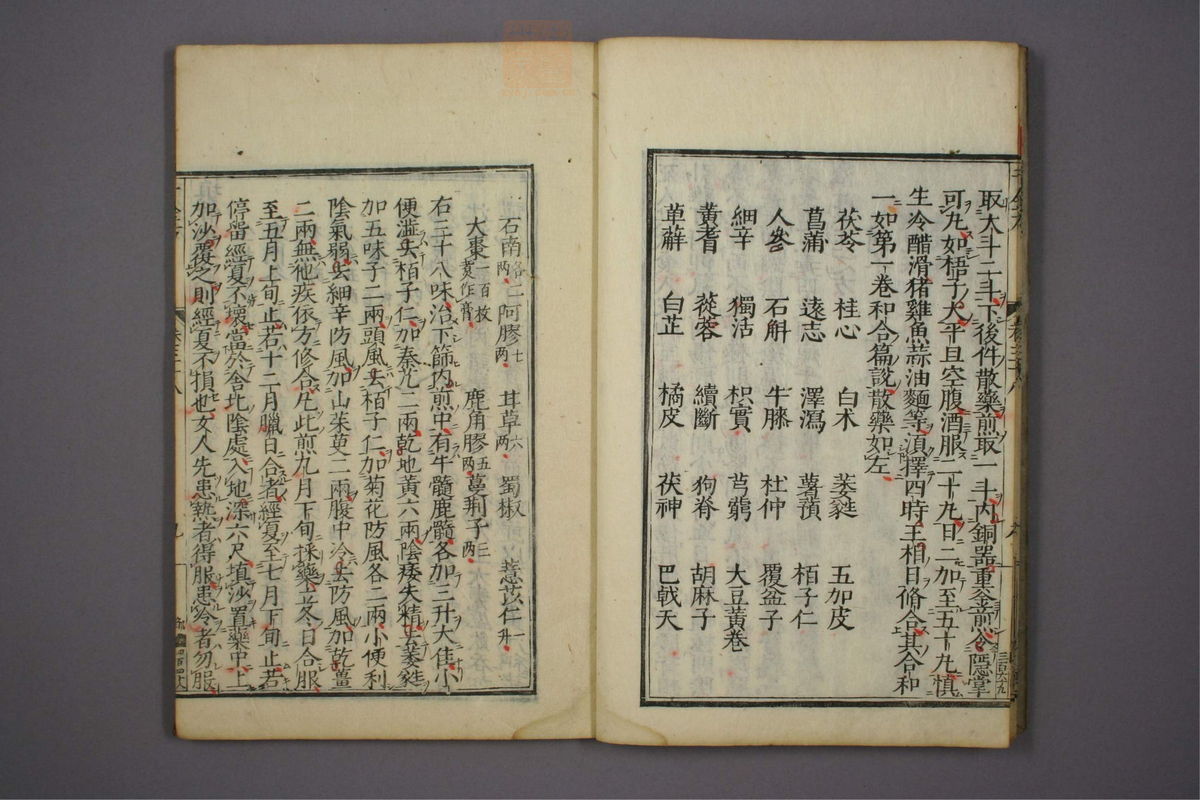 取大斗二斗下後件散藥煎取一斗內銅器重釜煎令隱掌
可丸如梧子大平旦空腹酒服二十丸日二加至五十丸慎
生冷醋滑猪雞魚蒜油麵等湏擇四時王相日脩合其合和
一如第一卷和合篇說散藥如左
茯苓 桂心 白朮 萎蕤 五加皮
菖蒲 遠志 澤瀉 薯蕷 栢子仁
人參 石斛 牛膝 杜仲 覆盆子
細辛 獨活 枳實 芎藭 大豆黃卷
黃耆 蓯蓉 續斷 狗脊 胡麻子
萆薢 白芷 橘皮 茯神 巴戟天
石南各二兩 阿膠七兩 茸草六兩 蜀椒 薏苡仁一升
大棗一百枚煮作膏 鹿角膠五兩 蔓荆子三兩
右三十八味治下篩內煎中有牛髓鹿髓各加三升大佳小
便澁去栢子仁加秦艽二兩乾地黃六兩陰痿失精去萎蕤
加五味子二兩頭風去栢子仁加菊花防風各二兩小便利
陰氣弱去細辛防風加山茱萸二兩腹中冷去防風加乾薑
二兩無他疾依方修合凢此煎九月下旬採藥立冬日合服
至五月上旬止若十二月臘日合者經夏至七月下旬止若
停留經夏不壞當於舍北陰處入地深六尺填沙置藥中上
加沙覆之則經夏不損也女人先患熱者得服患冷者勿服